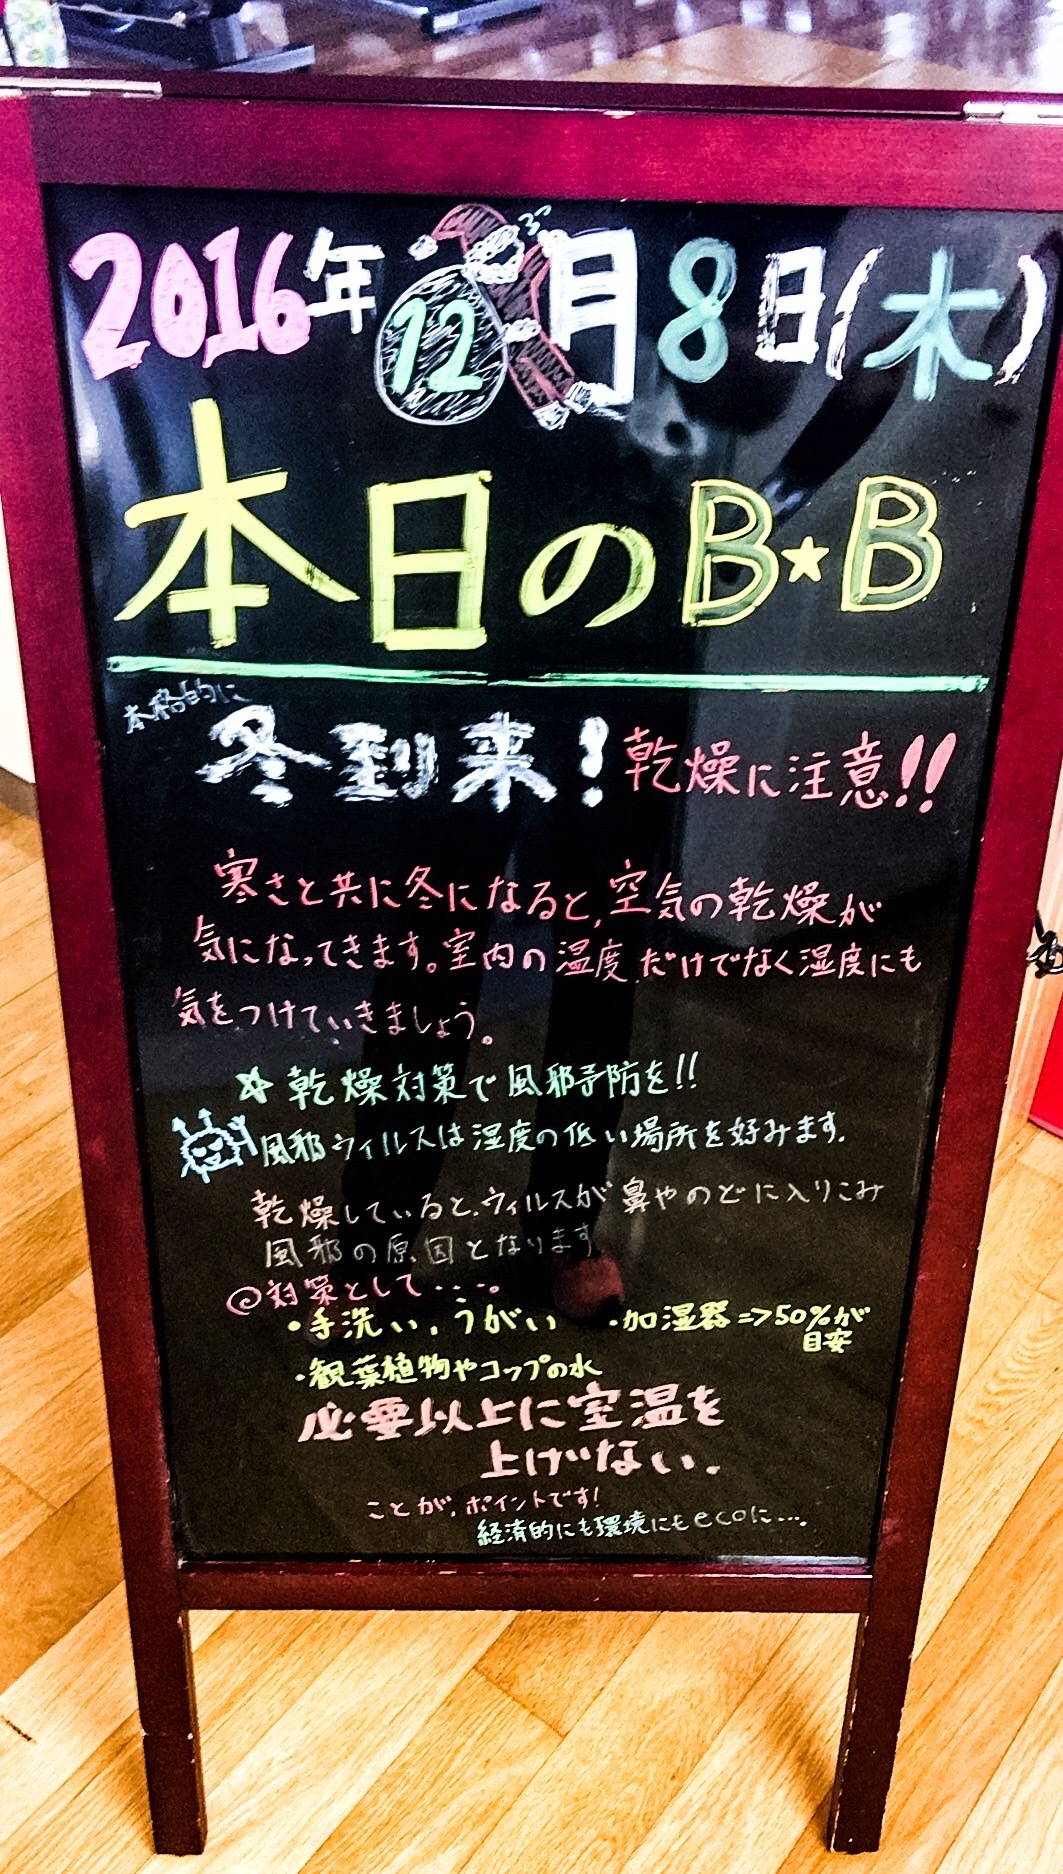 2016年12月8日(木)
本日のB★B
本格的に
冬到来!乾燥に注意!!
寒さと共に冬になると、空気の乾燥が
気になってきます。室内の温度だけでなく湿度にも
気をつけていきましょう。
☆乾燥対策で風邪予防を!!
風邪ウィルスは湿度の低い場所を好みます.
乾燥していると、ウィルスが鼻やのどに入りこみ
風邪の原因となります
◎対策として・・・・。
・手洗い、うがい ・加湿器=>50%が
目安
・観葉植物やコップの水
必要以上に室温を
上げない.
ことが、ポイントです!
経済的にも環境にもecoに・・・。